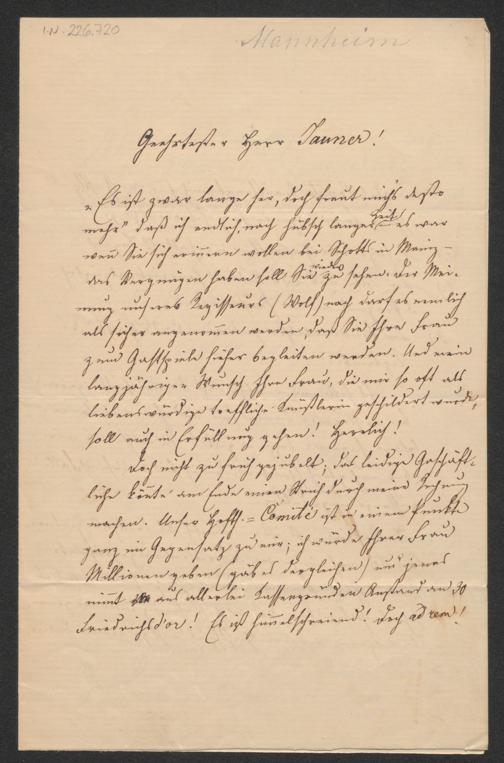 I.N. 226.720
Mannheim
Geehrtester Herr Jauner!
„Es ist zwar lange her, doch freut mich's desto
mehr" daß ich endlich, nach hübsch langer Zeit – es war
wenn Sie sich erinnern wollen bei Schotts in Mainz –
das Vergnügen haben soll Sie wieder zu sehen. Der Mei-
nung unseres Regisseurs (Wolf) nach darf es nemlich
als sicher angenommen werden, daß Sie Ihre Frau
zum Gastspiele hieher begleiten werden. Und mein
langjähriger Wunsch Ihre Frau, die mir so oft als
liebenswürdige treffliche Künstlerin geschildert wurde,
soll auch in Erfüllung gehen! Herrlich!
Doch nicht zu früh gejubelt; das leidige Geschäft-
liche könnte am Ende einen Strich durch meine
machen. Unser Hofth.=Comité ist in einem Punkte
ganz im Gegensatz zu mir; ich würde Ihrer Frau
Millionen geben (gäb es dergleichen) und jenes
nimmt aus allerlei Kassengründen Anstand an 30
Friedrichsd'or! Es ist himmelschreiend! Doch ad rem!